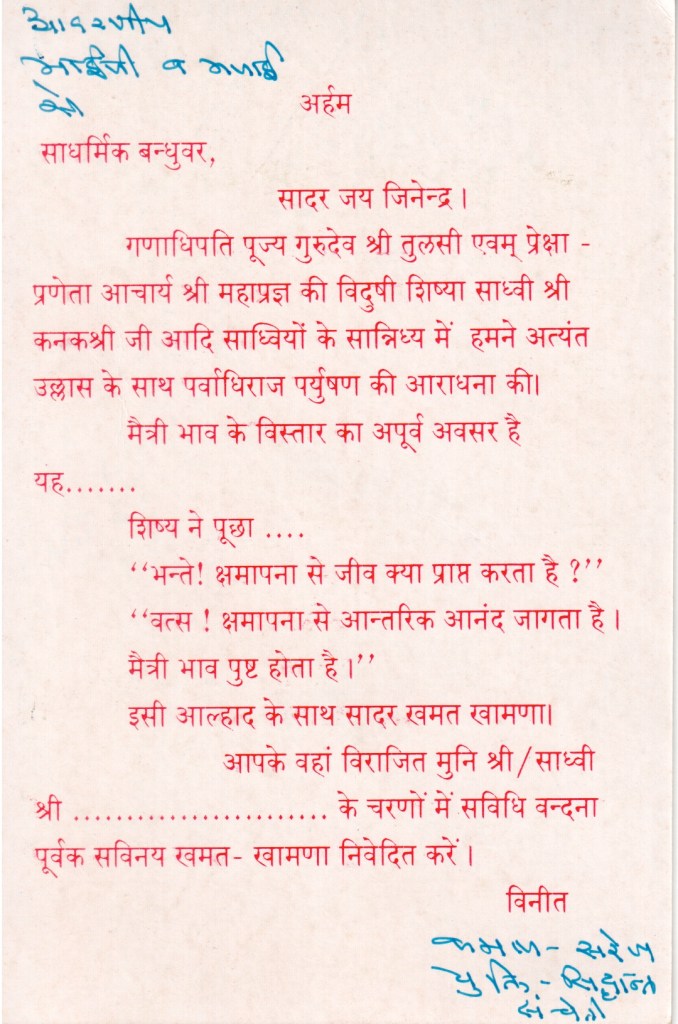 आदरणीय
भाईजी व भाभी
को
अर्हम
साधर्मिक बन्धुवर,
सादर जय जिनेन्द्र।
गणाधिपति पूज्य गुरुदेव श्री तुलसी एवम् प्रेक्षा -
प्रणेता आचार्य श्री महाप्रज्ञ की विदुषी शिष्या साध्वी श्री
कनकश्री जी आदि साध्वियों के सान्निध्य में हमने अत्यंत
उल्लास के साथ पर्वाधिराज पर्युषण की आराधना की।
मैत्री भाव के विस्तार का अपूर्व अवसर है
यह.......
शिष्य ने पूछा ....
‘‘भन्ते! क्षमापना से जीव क्या प्राप्त करता है ?’’
‘‘वत्स ! क्षमापना से आन्तरिक आनंद जागता है।
मैत्री भाव पुष्ट होता है।’’
इसी आल्हाद के साथ सादर खमत खामणा।
आपके वहां विराजित मुनि श्री/साध्वी
श्री ........................ के चरणों में सविधि वन्दना
पूर्वक सविनय खमत- खामणा निवेदित करें।
विनीत
कमल - सरोज
युक्ति - सिद्धान्त